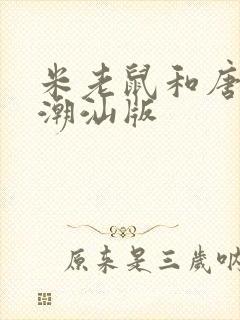 米老鼠和唐
潮汕版
原来是三岁呐